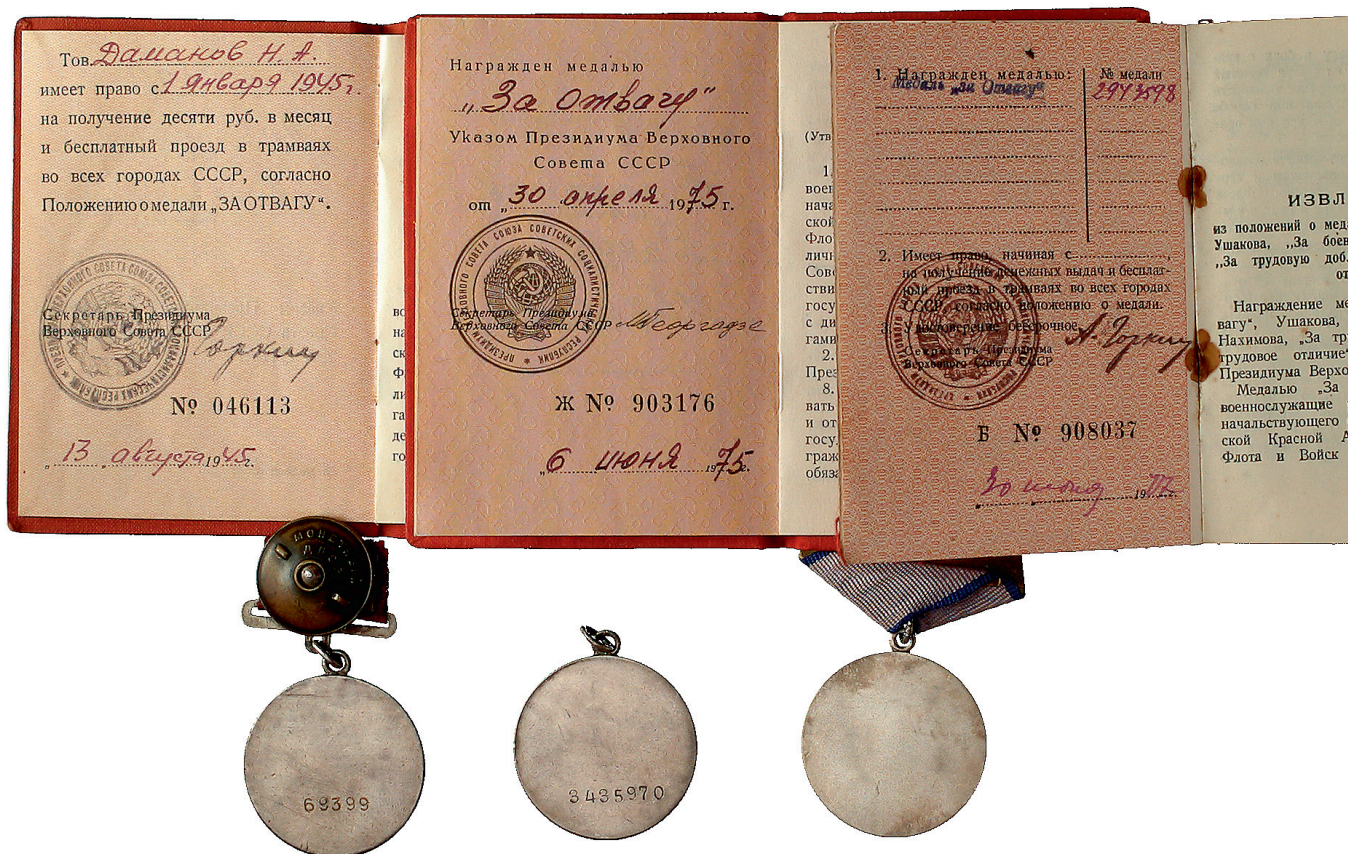 Тов. Даманов Н. А.
имеет право с 1 января 1945 г.
на получение десяти руб. в месяц
и бесплатный проезд в трамваях
во всех городах СССР, согласно
Положению о медали „ЗА ОТВАГУ“.
Секретарь Президиума
Верховного Совета СССР
Горкин
№ 046113
„13 августа 1945 г.
Награжден медалью
„За Отвагу“
Указом Президиума Верховного
Совета СССР
от „30 апреля 1975 г.
Секретарь Президиума
Верховного Совета СССР
МГеоргадзе
Ж № 903176
„6 июня 1975 г.
(Утв
1.
воен
нача
ской
Фло
личн
Сове
стви
госу
с ди
гами
2.
През
8.
вать
и от
госу
граж
обяза
1. Награжден медалью: № медали
Медаль „за Отвагу“ 2943598
2. Имеет право, начиная с
на получение денежных выдач и бесплат-
ный проезд в трамваях во всех городах
СССР, согласно положению о медали.
3. Удостоверение бессрочное.
Секретарь Президиума
Верховного Совета СССР
А. Горкин
Б № 908037
ИЗВЛ
из положений о меда
Ушакова, „За боев
„За трудовую добл
от
Награждение ме
вагу“, Ушакова,
Нахимова, „За тр
трудовое отличие“
Президиума Верхо
Медалью „За
военнослужащие
начальствующего
ской Красной А
Флота и Войск
69399
3435970